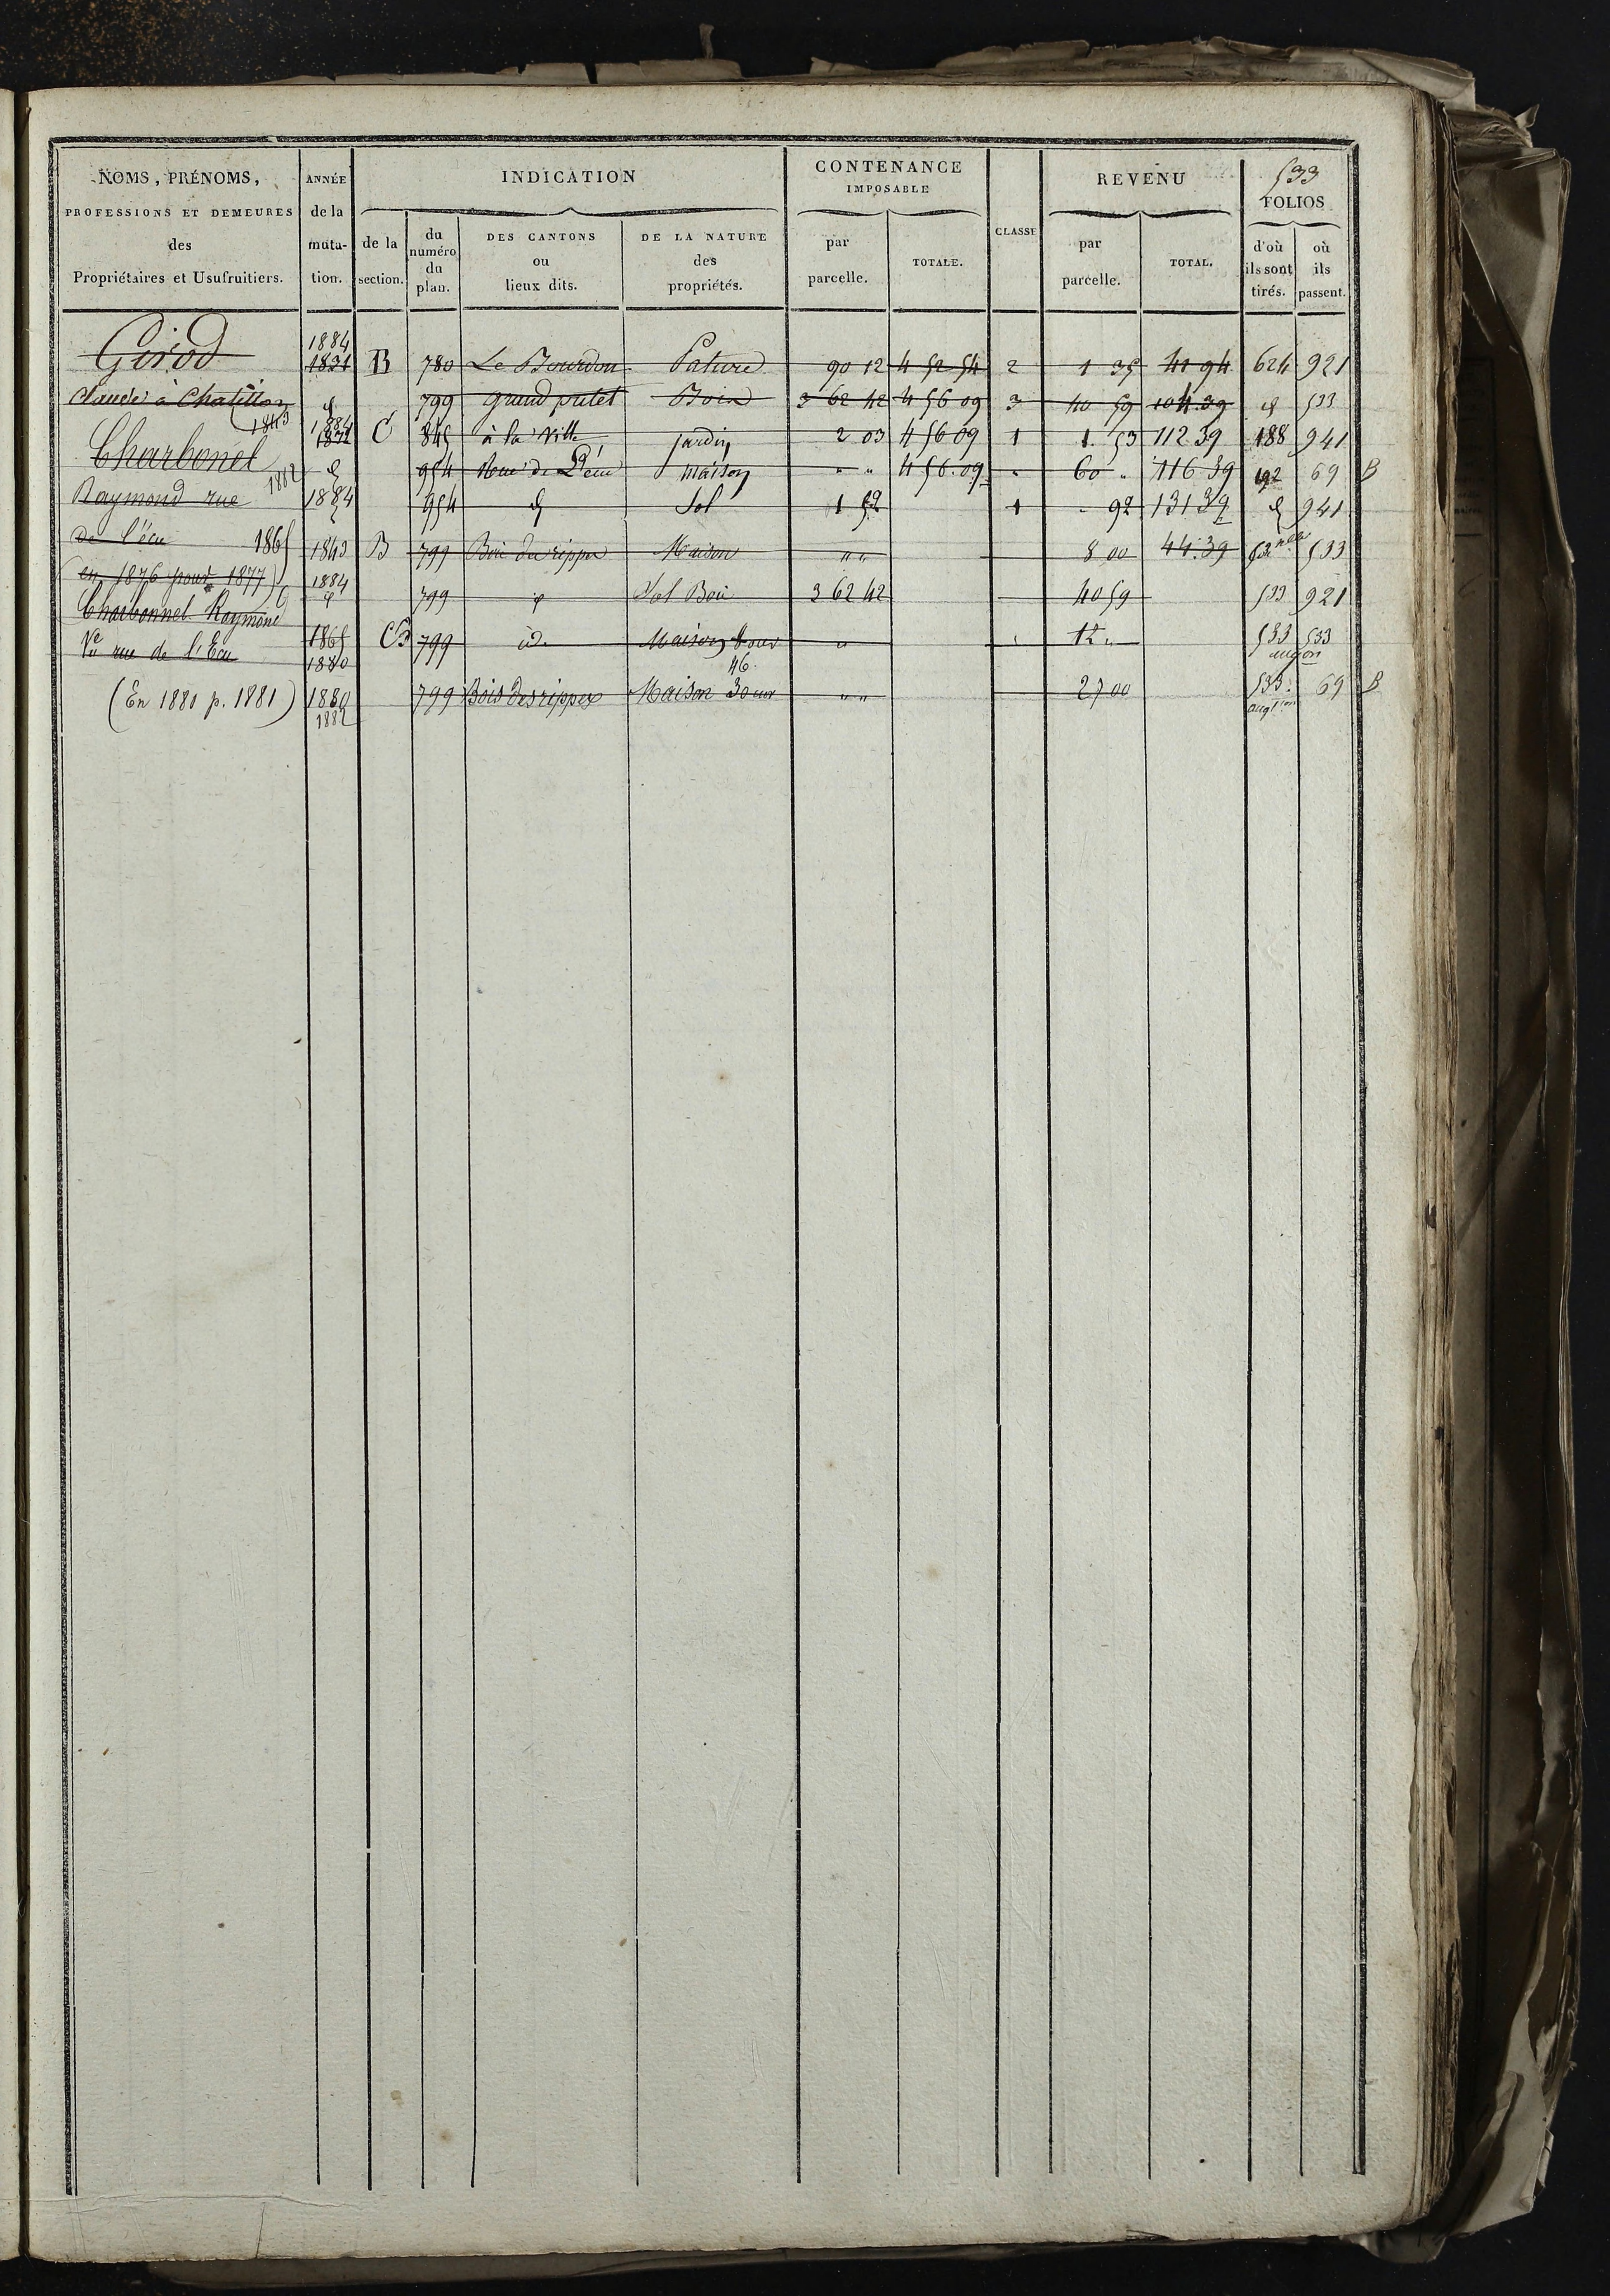 533
NOMS, PRÉNOMS,
PROFESSIONS ET DEMEURES
des
Propriétaires et Usufruitiers.
ANNÉE
de la
muta-
tion.
INDICATION
de la
section.
du
numéro
du
plan.
DES CANTONS
ou
lieux dits.
DE LA NATURE
des
propriétés.
CONTENANCE
IMPOSABLE
par
parcelle.
TOTALE.
CLASSE
REVENU
par
parcelle.
TOTAL.
FOLIOS
d'où
ils sont
tirés.
où
ils
passent.
Girod
Claude à Chatillon
1843
Charbonel
1882
Raymond rue
de l'écu 1865
(en 1876 pour 1877)
Charbonnel Raymond
Ve rue de l'Ecu
(En 1880 p. 1881)
1884
1831 B 780 Le Bourdon Pature 90 12 4 52 54 2 1 35 41 94 624 921
d 799 grand putet Bois 3 62 42 4 56 09 3 40 59 104.39 d 533
1884
1872 C 845 à la Ville jardin 2 03 4 56 09 1 1.53 112 39 188 941
d 954 Rue de L'écu maison " " 4 56.09 60 " 116 39 192 69 B
1884 954 d Sol 1 52 1 92 131 39 d 941
1843 B 799 Bois du rippes Maison " " 8 00 44.39 533
1884
d 799 d Sol Bois 3 62 42 40 59 533 921
1865
1880 799 id. Maison " 12 " 533 533
augon
46
1880
1882 799 Bois des rippes Maison 30 ouv " " 27 00 533. 69 B
augtion